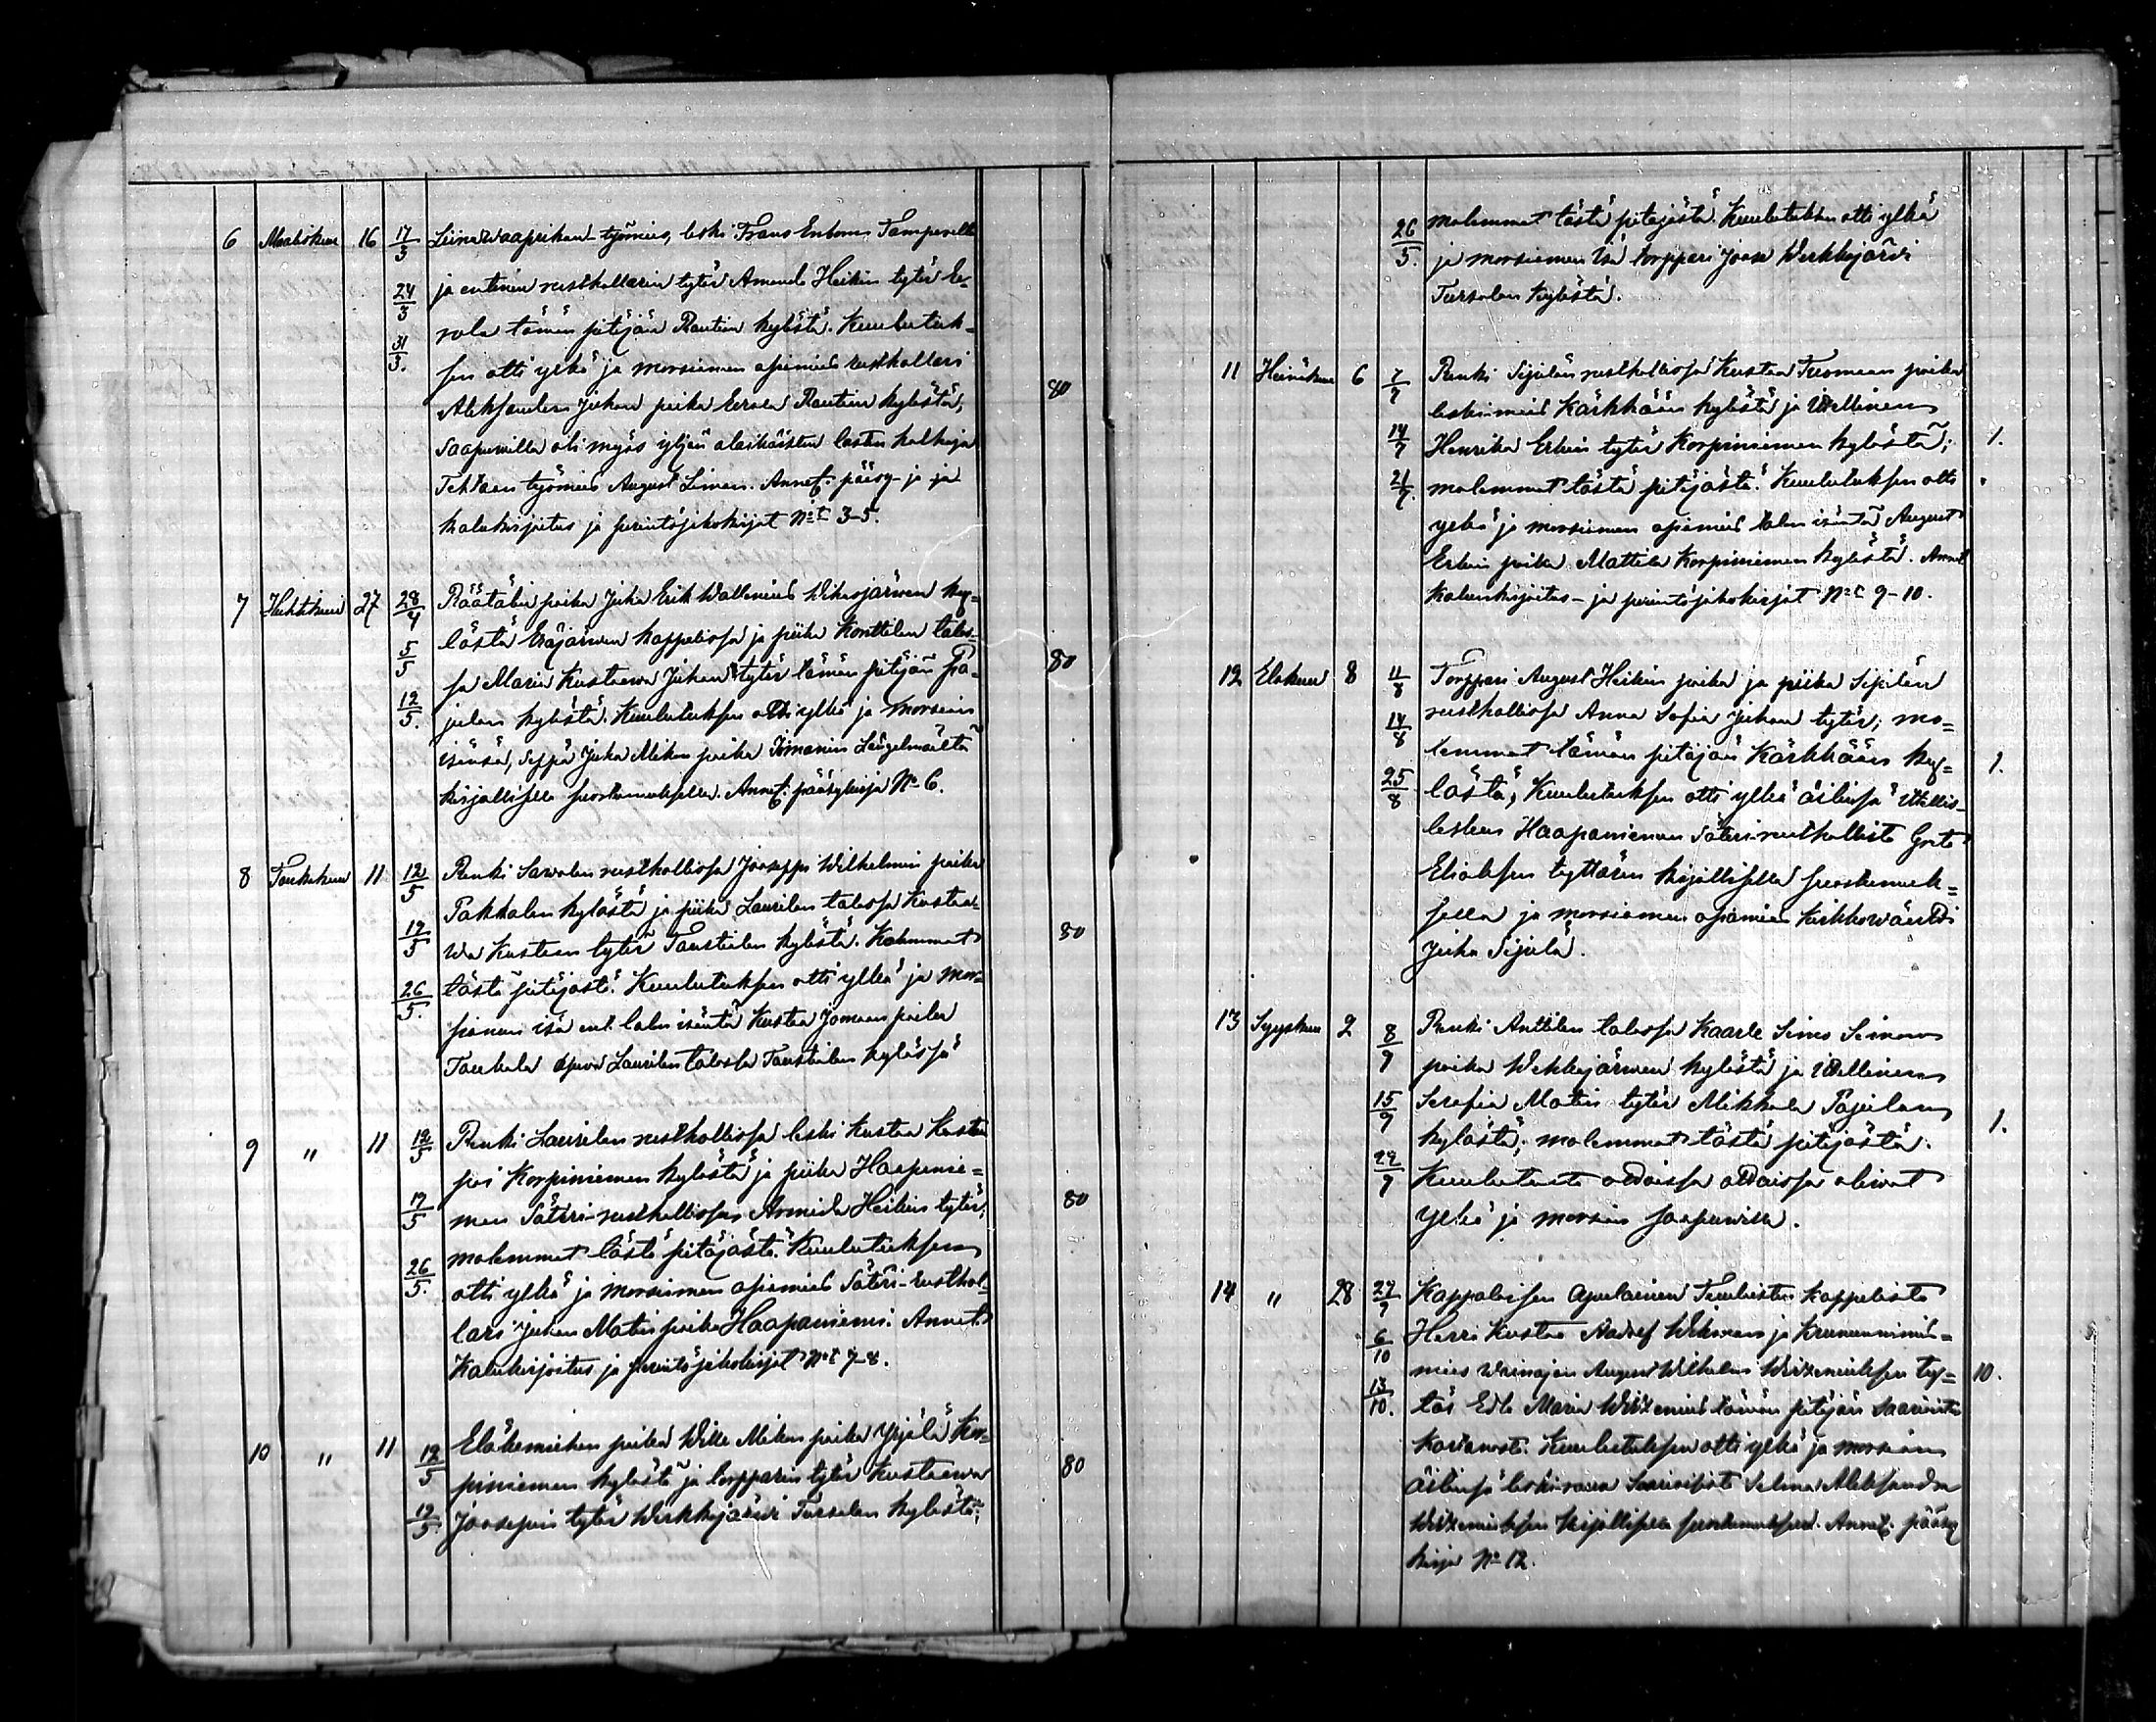 6 Maaliskuu 16 17/3 Liinawaaprikan työmies, leski Frans Enbom Tamperelta
24/3 ja entinen rusthollarin tytär Amanda Heikin tytär Er-
rola tämän pitäjän Rautin kylästä. Kuulutuk-
31/3. sen otti ylkä ja morsiamen opimies rusthollari
Aleksanderi Juhan poika Errola Rautin kylästä, 80
Saapuwilla oli myös yljän alaikäisten lasten holhoja
työmies August Liman. Annet. pääsy- ja
kalukirjoitus ja perintöjakokirjat No 3-5.
7 Huhtikuu 27 28/4 Räätälin poika Juha Erik Wallenius Wihasjärwen ky-
lästä Eräjärwen kappelissa ja piika Konttilan talos-
5/5 sa Maria Kustaawa Juhan tytär tämän pitäjän Pa- 80
12/5. julan kylästä. Kuulutuksen otti ylkä ja morsian
isänsä, Seppä Juha Mikon poika Längelmäeltä
kirjallisella suostumuksella. Annet. pääsykirja No 6.
8 Toukokuu 11 12/5 Renki Sawolan rusthollissa Jooseppi Wilhelmin poika
Pakkalan kylästä ja piika Laurilan talossa Kustaa-
19/5 wa Kustaan tytär Taustialan kylästä. Kummat 80
26/5. tästä pitäjästä. Kuulutuksen otti ylkä ja mor-
siamen isä ent. talon isäntä Kustaa Joonaan poika
Toukola asuva Laurilan talossa Taustialan kylässä
9 " 11 12/5 Renki Laurilan rusthollissa leski Kustaa Kustaan
poi Korpiniemen kylästä ja piika Haapanie-
19/5 men Säteri-rusthollissa Armida Heikin tytär; 80
molemmat tästä pitäjästä. Kuulutuksen
26/5. otti ylkä ja morsiamen opimies Säteri-rusthol-
lari Juhan Matin poika Haapaniemi. Annet
Kalukirjoitus ja perintöjakokirjat No 7-8.
10 " 11 12/5 Eläkemiehen poika Wille Mikon poika Yrjälä Kor- 80
piniemen kylästä ja torpparin tytär Kustaawa
19/5 Joosepin tytär Werkkojärwi Tursolan kylästä;
26/5. molemmat tästä pitäjästä. Kuulutuksen otti ylkä
ja morsiamen isä torppari Joose Werkkojärwi
Tursolan kylästä.
11 Heinäkuu 6 7/7 Renki Sipilän rusthollissa Kustaa Tuomaan poika
leskimies Kärkkään kylästä ja itsellinen
14/7 Henrika Erkin tytär Korpiniemen kylästä; 1.
21/7. molemmat tästä pitäjästä. Kuulutuksen otti
ylkä ja morsiamen opimies talon isäntä August
Erkin poika Mattila Korpiniemen kylästä. Annet
kalunkirjoitus- ja perintöjakokirjat No 9-10.
12 Elokuu 8 11/8 Torppari August Heikin poika ja piika Sipilän
14/8 rusthollissa Anna Sofia Juhan tytär; mo-
lemmat tämän pitäjän Kärkkään ky- 1.
25/8 lästä, Kuulutuksen otti ylkä äitinsä itsellis-
lesken Haapaniemen Säteri-rusthollista Greta
Eliaksen tyttären kirjallisella suostumuk-
sella ja morsiamen opimies kirkkowäärti
Juha Sipilä.
13 Syyskuu 2 8/9 Renki Anttilan talossa Kaarle Simo Simon
poika Wehkajärwen kylästä ja itsellinen
15/9 Serafia Matin tytär Mikkola Pajulan 1.
kylästä; molemmat tästä pitäjästä.
22/9 Kuulutusta ottaissa oliwat
ylkä ja morsian saapuwilla.
14 " 28 29/9 Kappalaisen apulainen Teuliston kappelista
6/10 Herra Kustaa Aadolf Wikman ja Kruununnimis-
mies wainajan August Wilhelm Wirzeniuksen ty- 10.
13/10. tär Edla Maria Wirzenius tämän pitäjän Saarioisten
kartanosta. Kuulutuksen otti ylkä ja morsian
äitinsä leski-rouwa Selma Aleksandra
Wirzeniuksen kirjallisella suostumuksella. Annet. pääsy
kirja No 12.